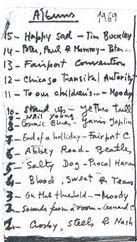 Albums 1969
15 - Happy sad - Tim Buckley
14 - Peter, Paul & Mommy -
13 - Fairport Convention
12 - Chicago Transit Autority
11 - To our children's - Moody
10 - Stand up - Jethro Tull
9 - Neil Young
8 - Cosmic Blues - Janis Joplin
7 - End of a holliday - Fairport C.
6 - Abbey Road - Beatles
5 - Salty Dog - Procol Harum
4 - Blood, Sweat & Tears
3 - On the threshold - Moody
2 - Sounds from a room - Leonard C
1 - Crosby, Stills & Nash